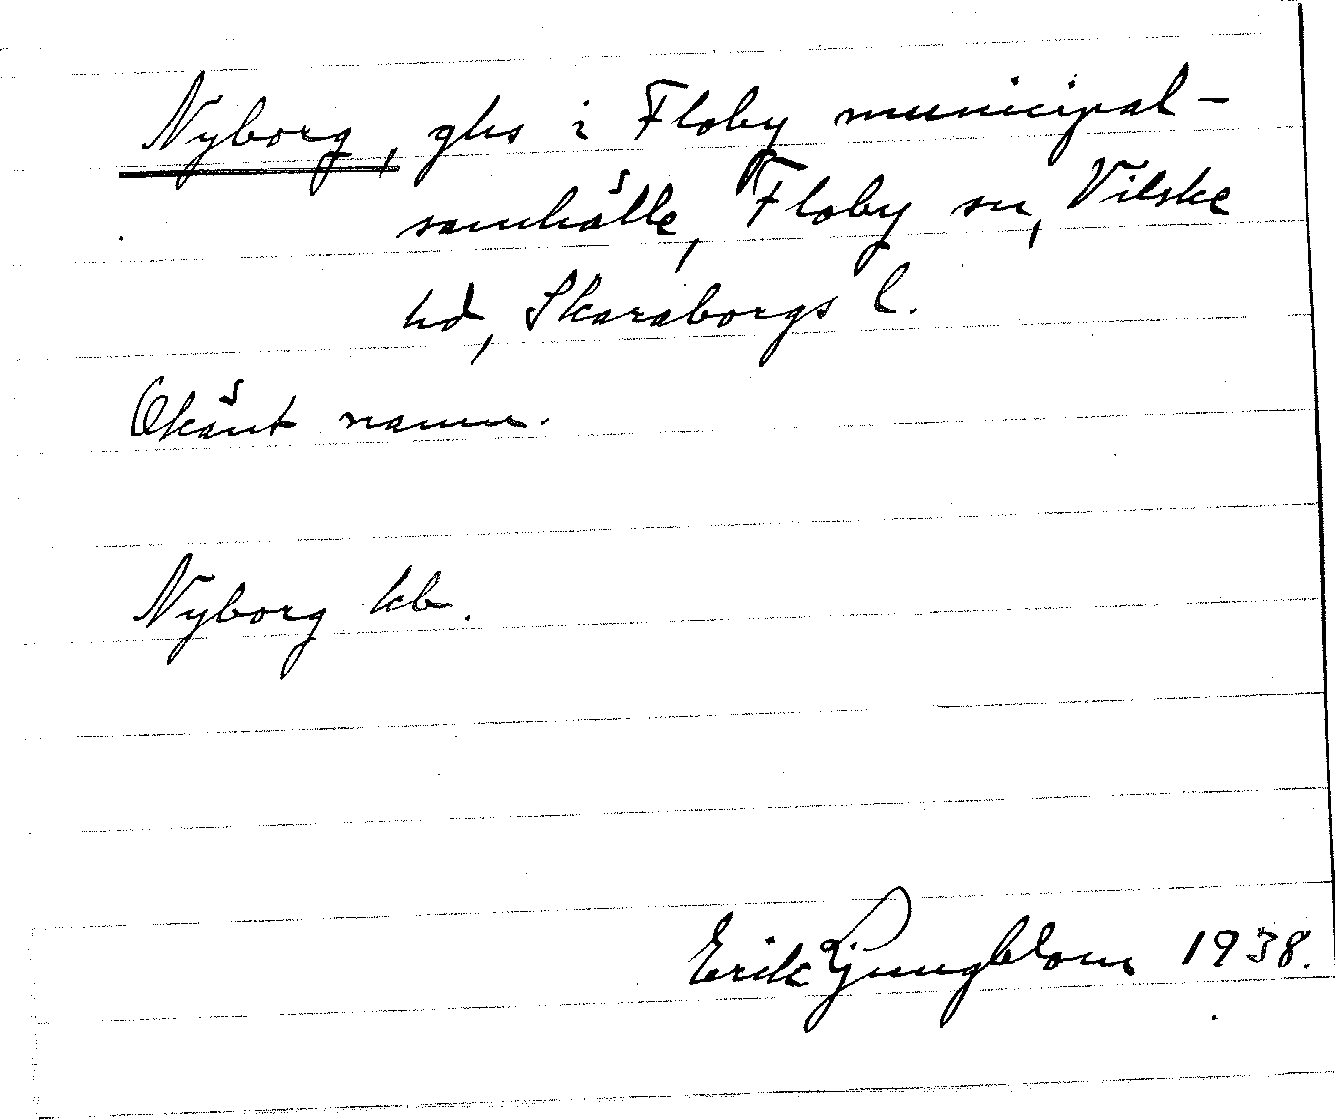 Nyborg, ghs i Floby municipal-
samhälle, Floby sn, Vilske
hd, Skaraborgs l.
Okänt namn.
Nyborg kb.
Erik Ljungblom 1938.